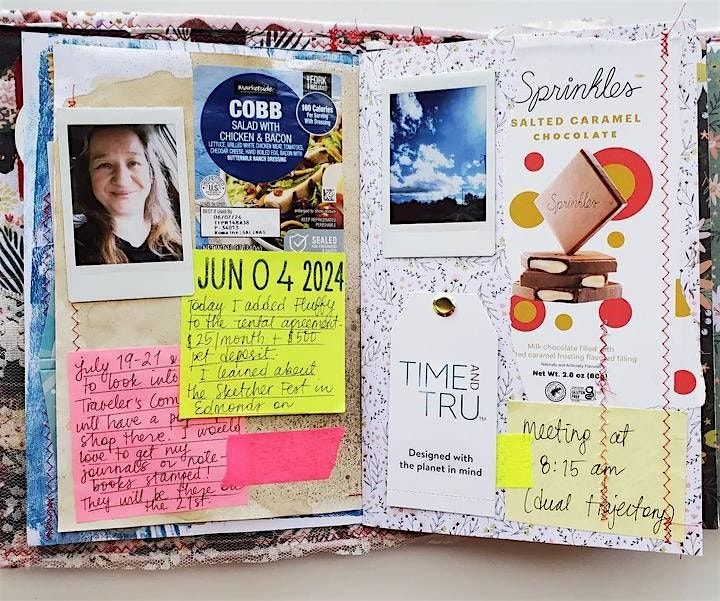 marketside
FORK
INCLUDED
COBB
SALAD WITH
CHICKEN & BACON
LETTUCE, GRILLED WHITE CHICKEN MEAT, TOMATOES,
CHEDDAR CHEESE, HARD BOILED EGG, BACON WITH
BUTTERMILK RANCH DRESSING
160 Calories
Per Serving
With Dressing
BEST if Used By
06/07/24
Romaine:SALINAS
KEEP REFRIGERATED
PERISHABLE
SEALED
JUN 0 4 2024
Today I added Fluffy
to the rental agreement
$25/month + $500
pet deposit.
I learned about
the Sketcher Fest in
Edmonds on
July 19-21 &
to look into
Traveler's Com
will have a p
shop there. I would
love to get my
journals or note-
books stamped!
They will be there on
the 21st.
Sprinkles
SALTED CARAMEL
CHOCOLATE
Sprinkles
Milk chocolate filled
ted caramel frosting flavored filling
Naturally and Artificially Flavored
Net Wt. 2.8 oz (80g)
TIME AND
TRU
Designed with
the planet in mind
Meeting at
8:15 am
(dual trajectory)